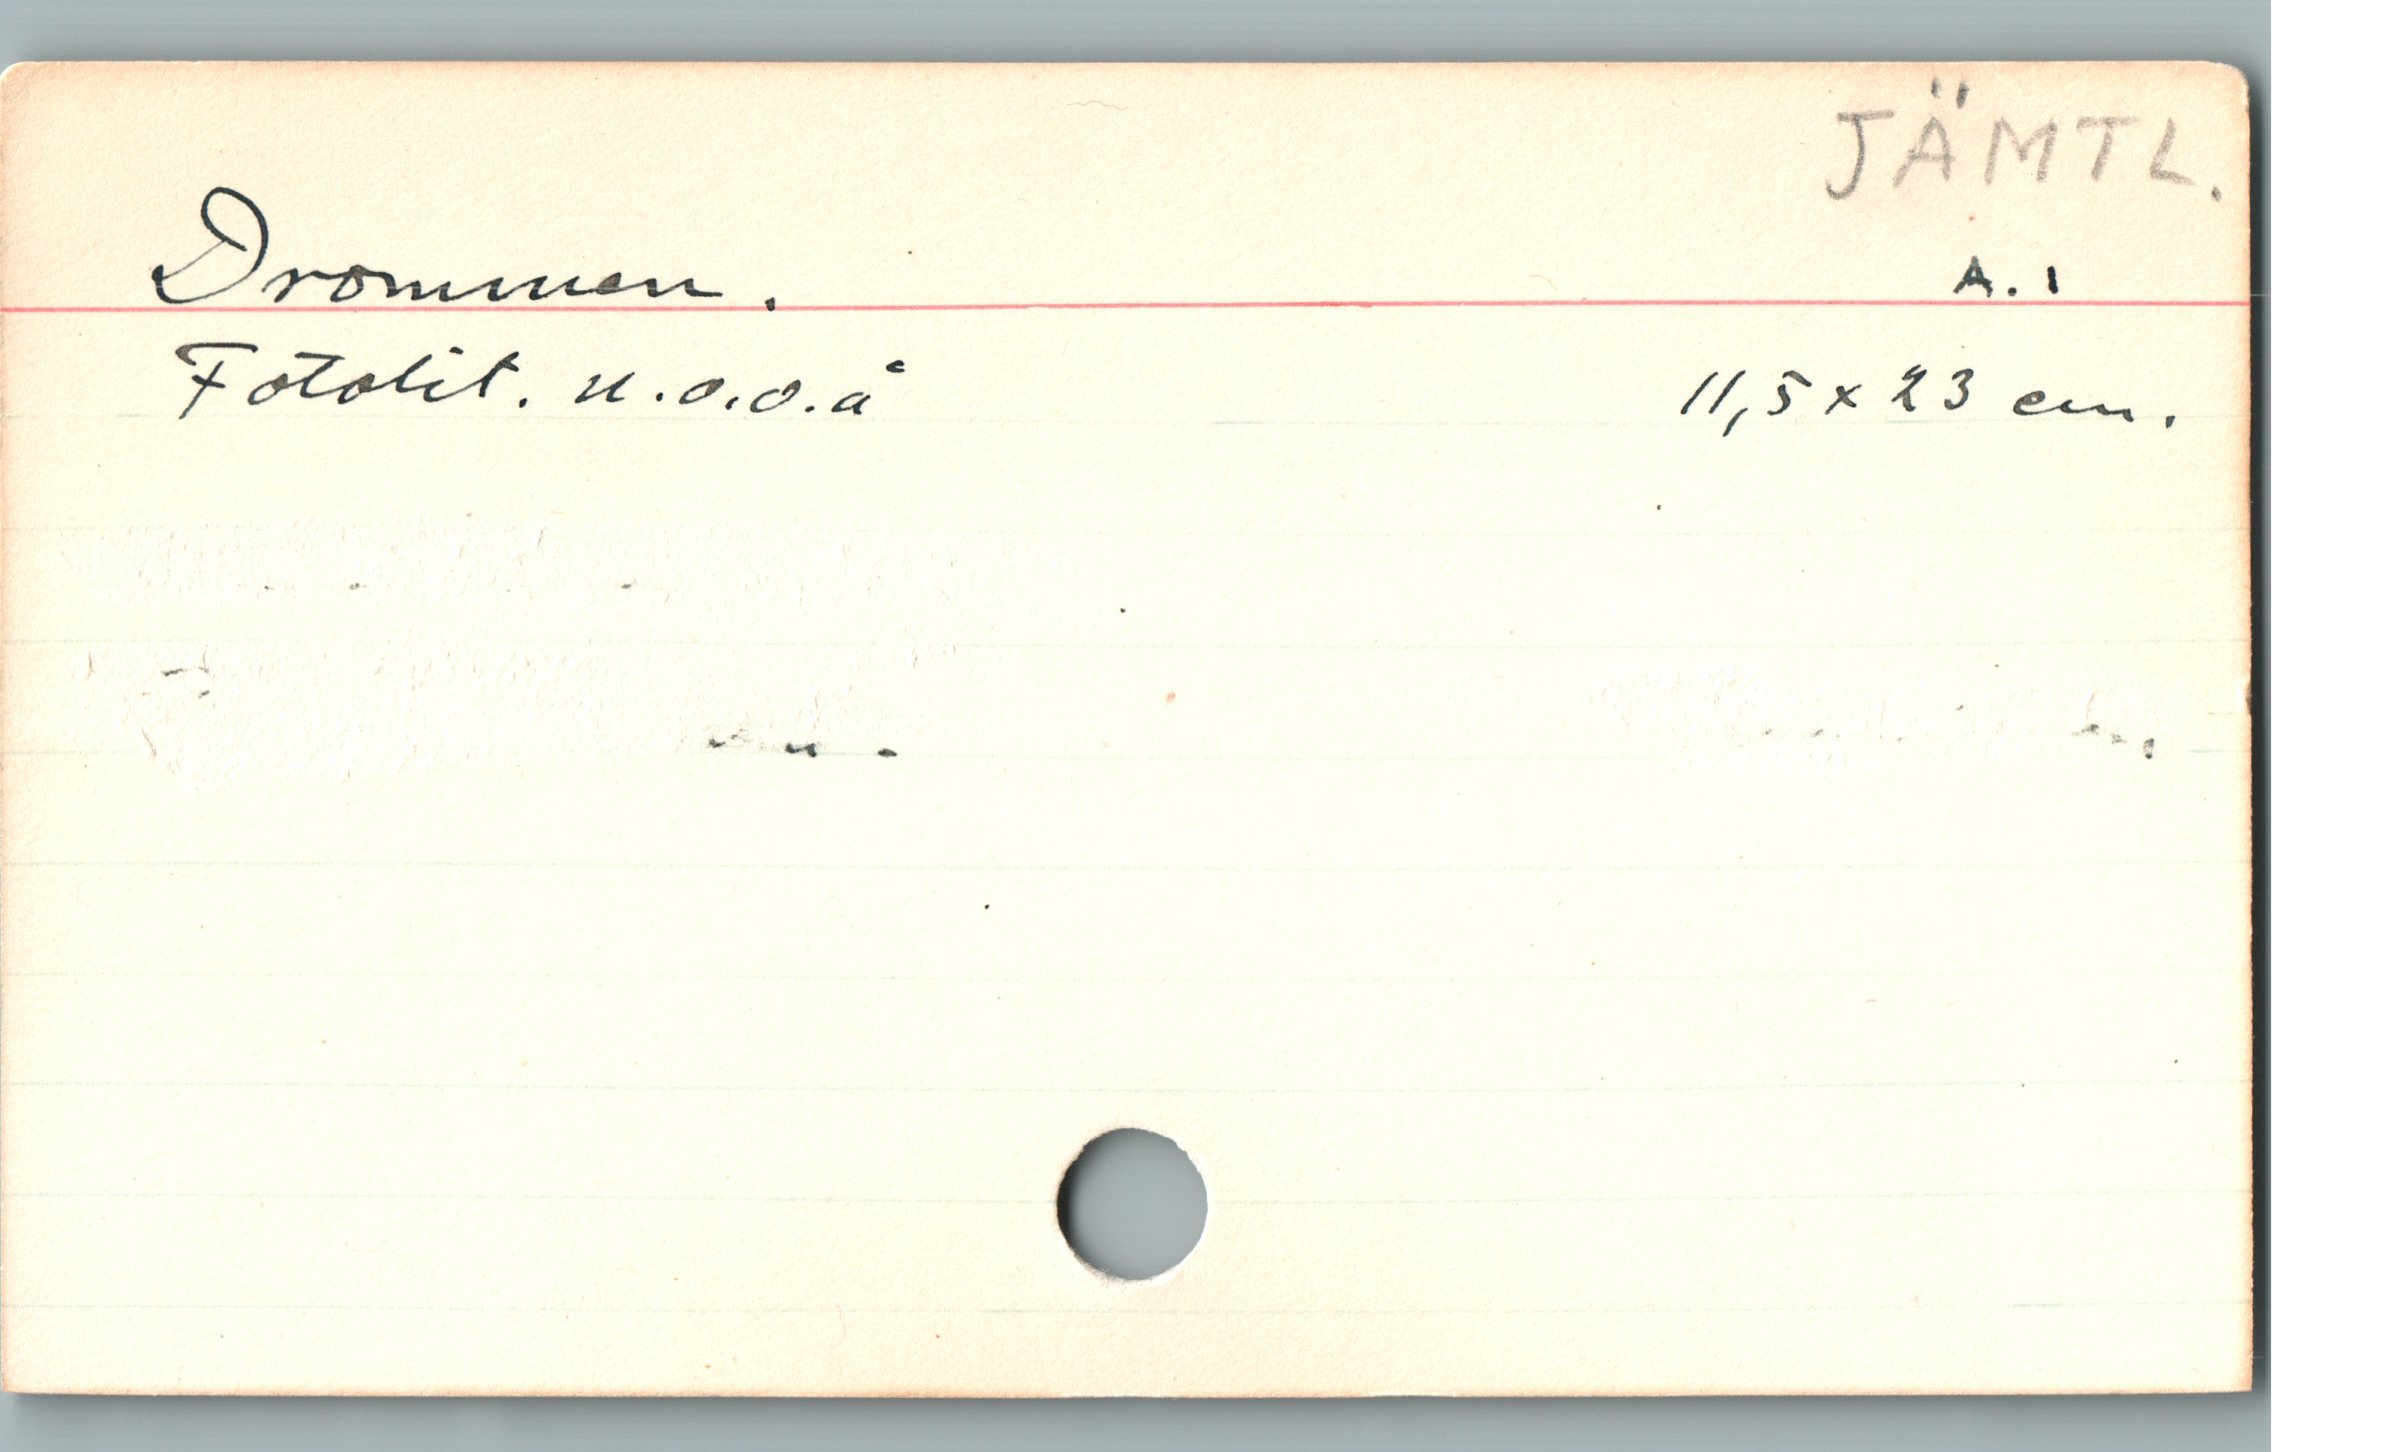 JÄMTL.
Drommen. A.1
Fotolit. u.o.o.å 11,5 x 23 cm.